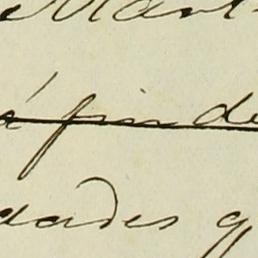 Mart
á fin de
dades q